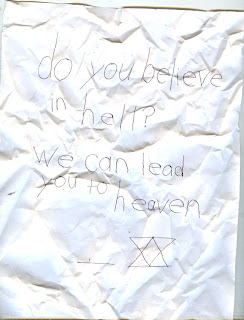 do you believe
in hell?
we can lead
you to heaven